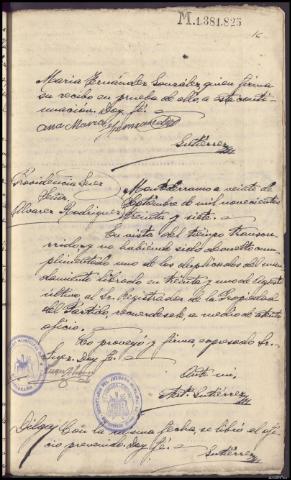 M.1.381.825
María Fernández González, quien firma
su recibo en prueba de ello a esta conti-
nuación. Doy fé.
Ana María Fernández
Gutiérrez
Providencia Juez
Señor
Álvarez Rodríguez
a veinte de
Septiembre de mil novecientos
treinta y siete.
En vista del tiempo transcu-
rrido, y no habiendo sido devuelto cum-
plimentado uno de los duplicados del man-
damiento librado en treinta y uno de Agosto
último, al Sr. Registrador de la Propiedad
del Partido, recuérdesele, a medio de atento
oficio.
Lo proveyó y firma expresado Sr.
Juez. Doy fé.
Ante mi,
Ant. Gutiérrez
Dilga/ Con la misma fecha, se libró el ofi-
cio prevenido. Doy fé.
Gutiérrez